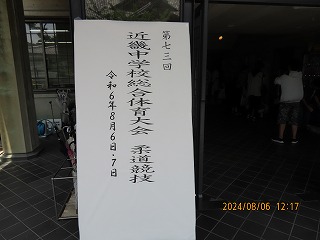 第七三回
近畿中学校総合体育大会 柔道競技
令和6年8月6日・7日
2024/08/06 12:17